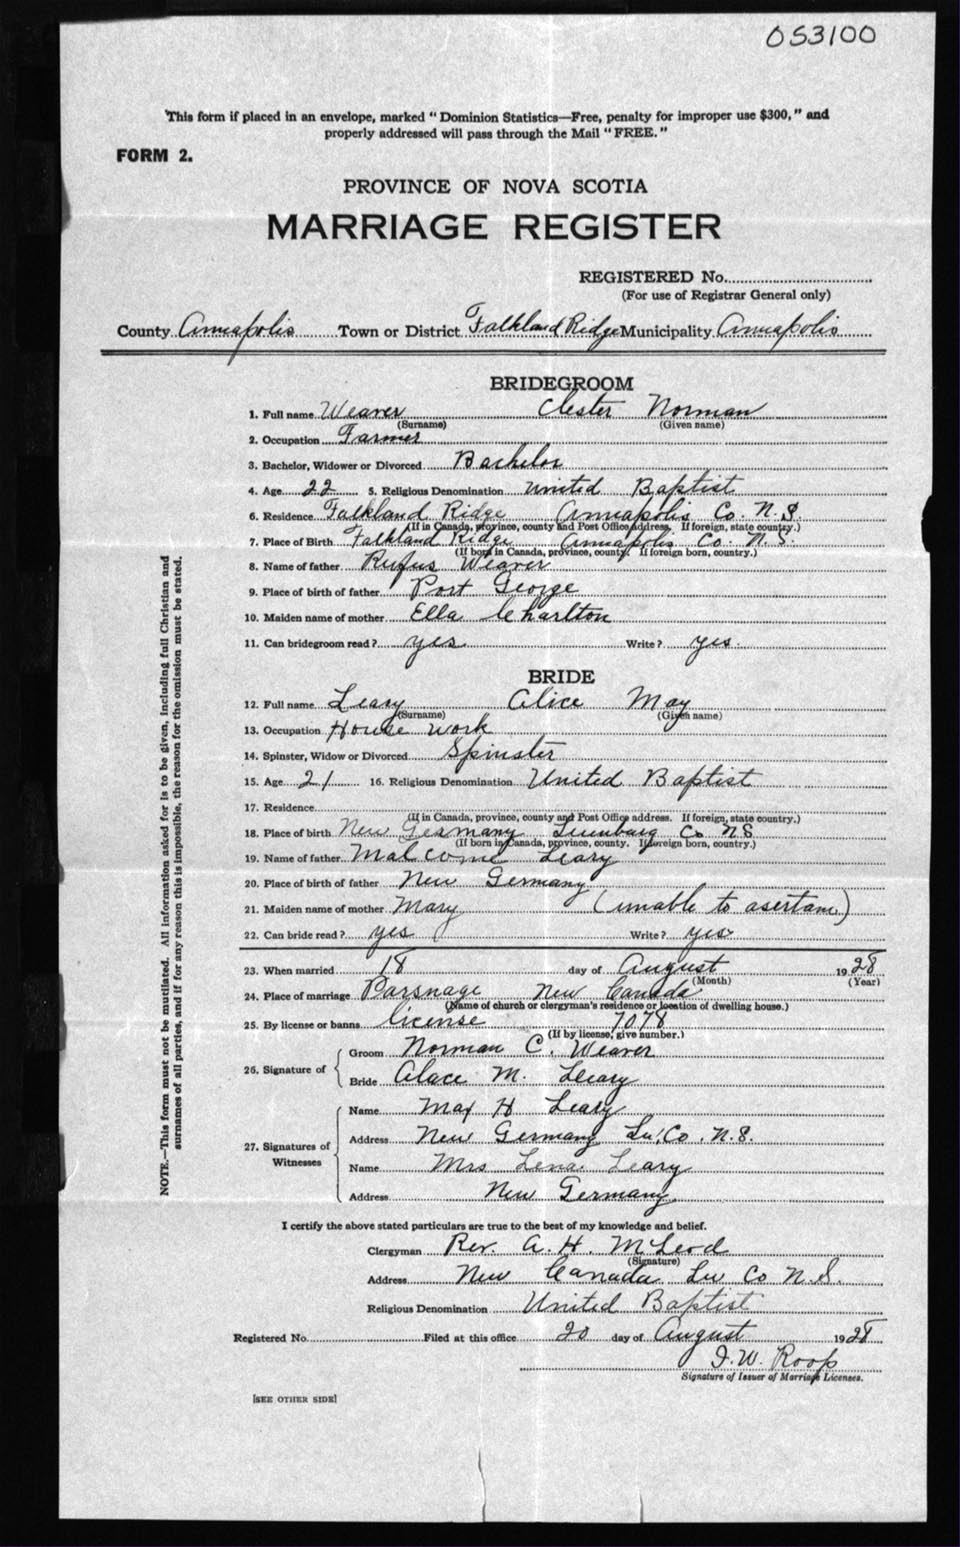 053100
"This form if placed in an envelope, marked "Dominion Statistics—Free, penalty for improper use $300," and
properly addressed will pass through the Mail "FREE."
FORM 2.
PROVINCE OF NOVA SCOTIA
MARRIAGE REGISTER
REGISTERED No.
(For use of Registrar General only)
County Annapolis Town or District Falkland Ridge Municipality Annapolis
BRIDEGROOM
1. Full name Weaver Clester Norman
(Surname) (Given name)
2. Occupation Farmer
3. Bachelor, Widower or Divorced Bachelor
4. Age 22 5. Religious Denomination United Baptist
6. Residence Falkland Ridge Annapolis Co. N.S.
(If in Canada, province, county and Post Office address. If foreign, state country.)
7. Place of Birth Falkland Ridge Annapolis Co. N.S.
(If born in Canada, province, county. If foreign born, country.)
8. Name of father Rufus Weaver
9. Place of birth of father Port George
10. Maiden name of mother Ella Charlton
11. Can bridegroom read? yes. Write? yes.
BRIDE
12. Full name Leary Alice May
(Surname) (Given name)
13. Occupation House work
14. Spinster, Widow or Divorced Spinster
15. Age 21 16. Religious Denomination United Baptist
17. Residence
(If in Canada, province, county and Post Office address. If foreign, state country.)
18. Place of birth New Germany Lunburg Co NS
(If born in Canada, province, county. If foreign born, country.)
19. Name of father Malcome Leary
20. Place of birth of father New Germany
21. Maiden name of mother Mary (unable to asertane)
22. Can bride read? yes Write? yes
23. When married 18 day of August 1928
(Month) (Year)
24. Place of marriage Parsnage New Canada
(Name of church or clergyman's residence or location of dwelling house.)
25. By license or banns. license 7078
(If by license, give number.)
26. Signature of
Groom Norman C. Weaver
Bride Alace M. Leary
27. Signatures of Witnesses
Name Max H Leary
Address New Germany Lu. Co. N.S.
Name Mrs Lena Leary
Address New Germany
I certify the above stated particulars are true to the best of my knowledge and belief.
Clergyman Rev. A. H. McLeod
(Signature)
Address New Canada Lu Co N.S.
Religious Denomination United Baptist
Registered No. Filed at this office 20 day of August 1928
I. W. Roop
Signature of Issuer of Marriage Licenses.
[SEE OTHER SIDE]
NOTE.—This form must not be mutilated. All information asked for is to be given, including full Christian and
surnames of all parties, and if for any reason this is impossible, the reason for the omission must be stated.